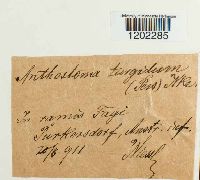 1202285
Anthostoma turgidum
(Pers) Nke
In ramis Fagi
Purkersdorf, Austr. inf.
911